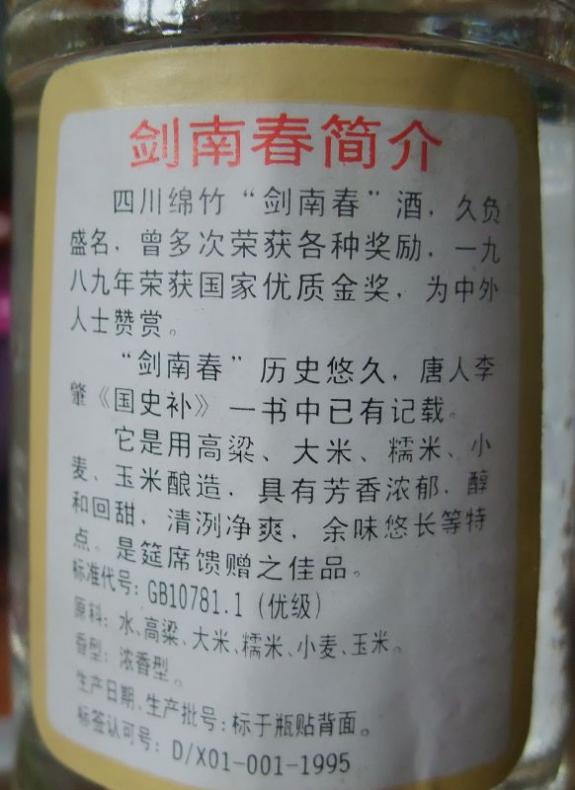 剑南春简介
四川绵竹“剑南春”酒，久负
盛名，曾多次荣获各种奖励，一九
八九年荣获国家优质金奖，为中外
人士赞赏。
“剑南春”历史悠久，唐人李
肇《国史补》一书中已有记载。
它是用高粱、大米、糯米、小
麦、玉米酿造，具有芳香浓郁，醇
和回甜，清洌净爽，余味悠长等特
点。是筵席馈赠之佳品。
标准代号：GB10781.1（优级）
原料：水、高粱、大米、糯米、小麦、玉米。
香型：浓香型。
生产日期、生产批号：标于瓶贴背面。
标签认可号：D/X01-001-1995